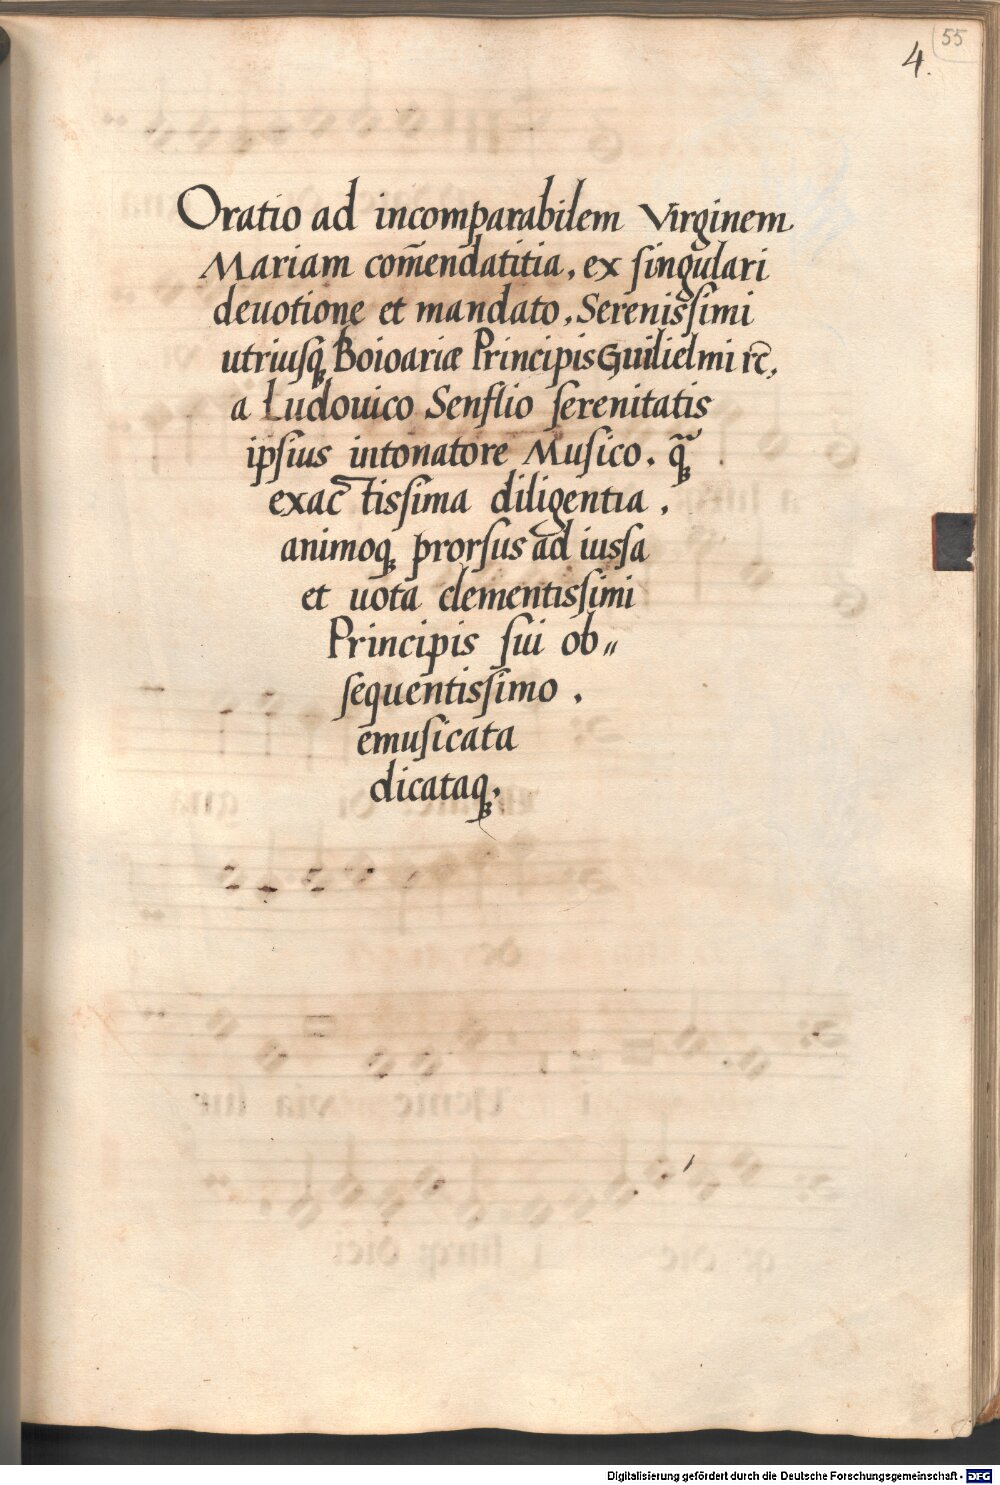 55
4.
Oratio ad incomparabilem Virginem
Mariam com̄endatitia, ex singulari
deuotione et mandato, Serenissimi
utriusq; Boioariæ Principis Guilielmi ꝛc̄,
a Ludouico Senflio serenitatis
ipsius intonatore Musico. q̃;
exactissima diligentia.
animoq; prorsus ad iussa
et uota clementissimi
Principis sui ob„
sequentissimo.
emusicata
dicataq;.
Digitalisierung gefördert durch die Deutsche Forschungsgemeinschaft - DFG